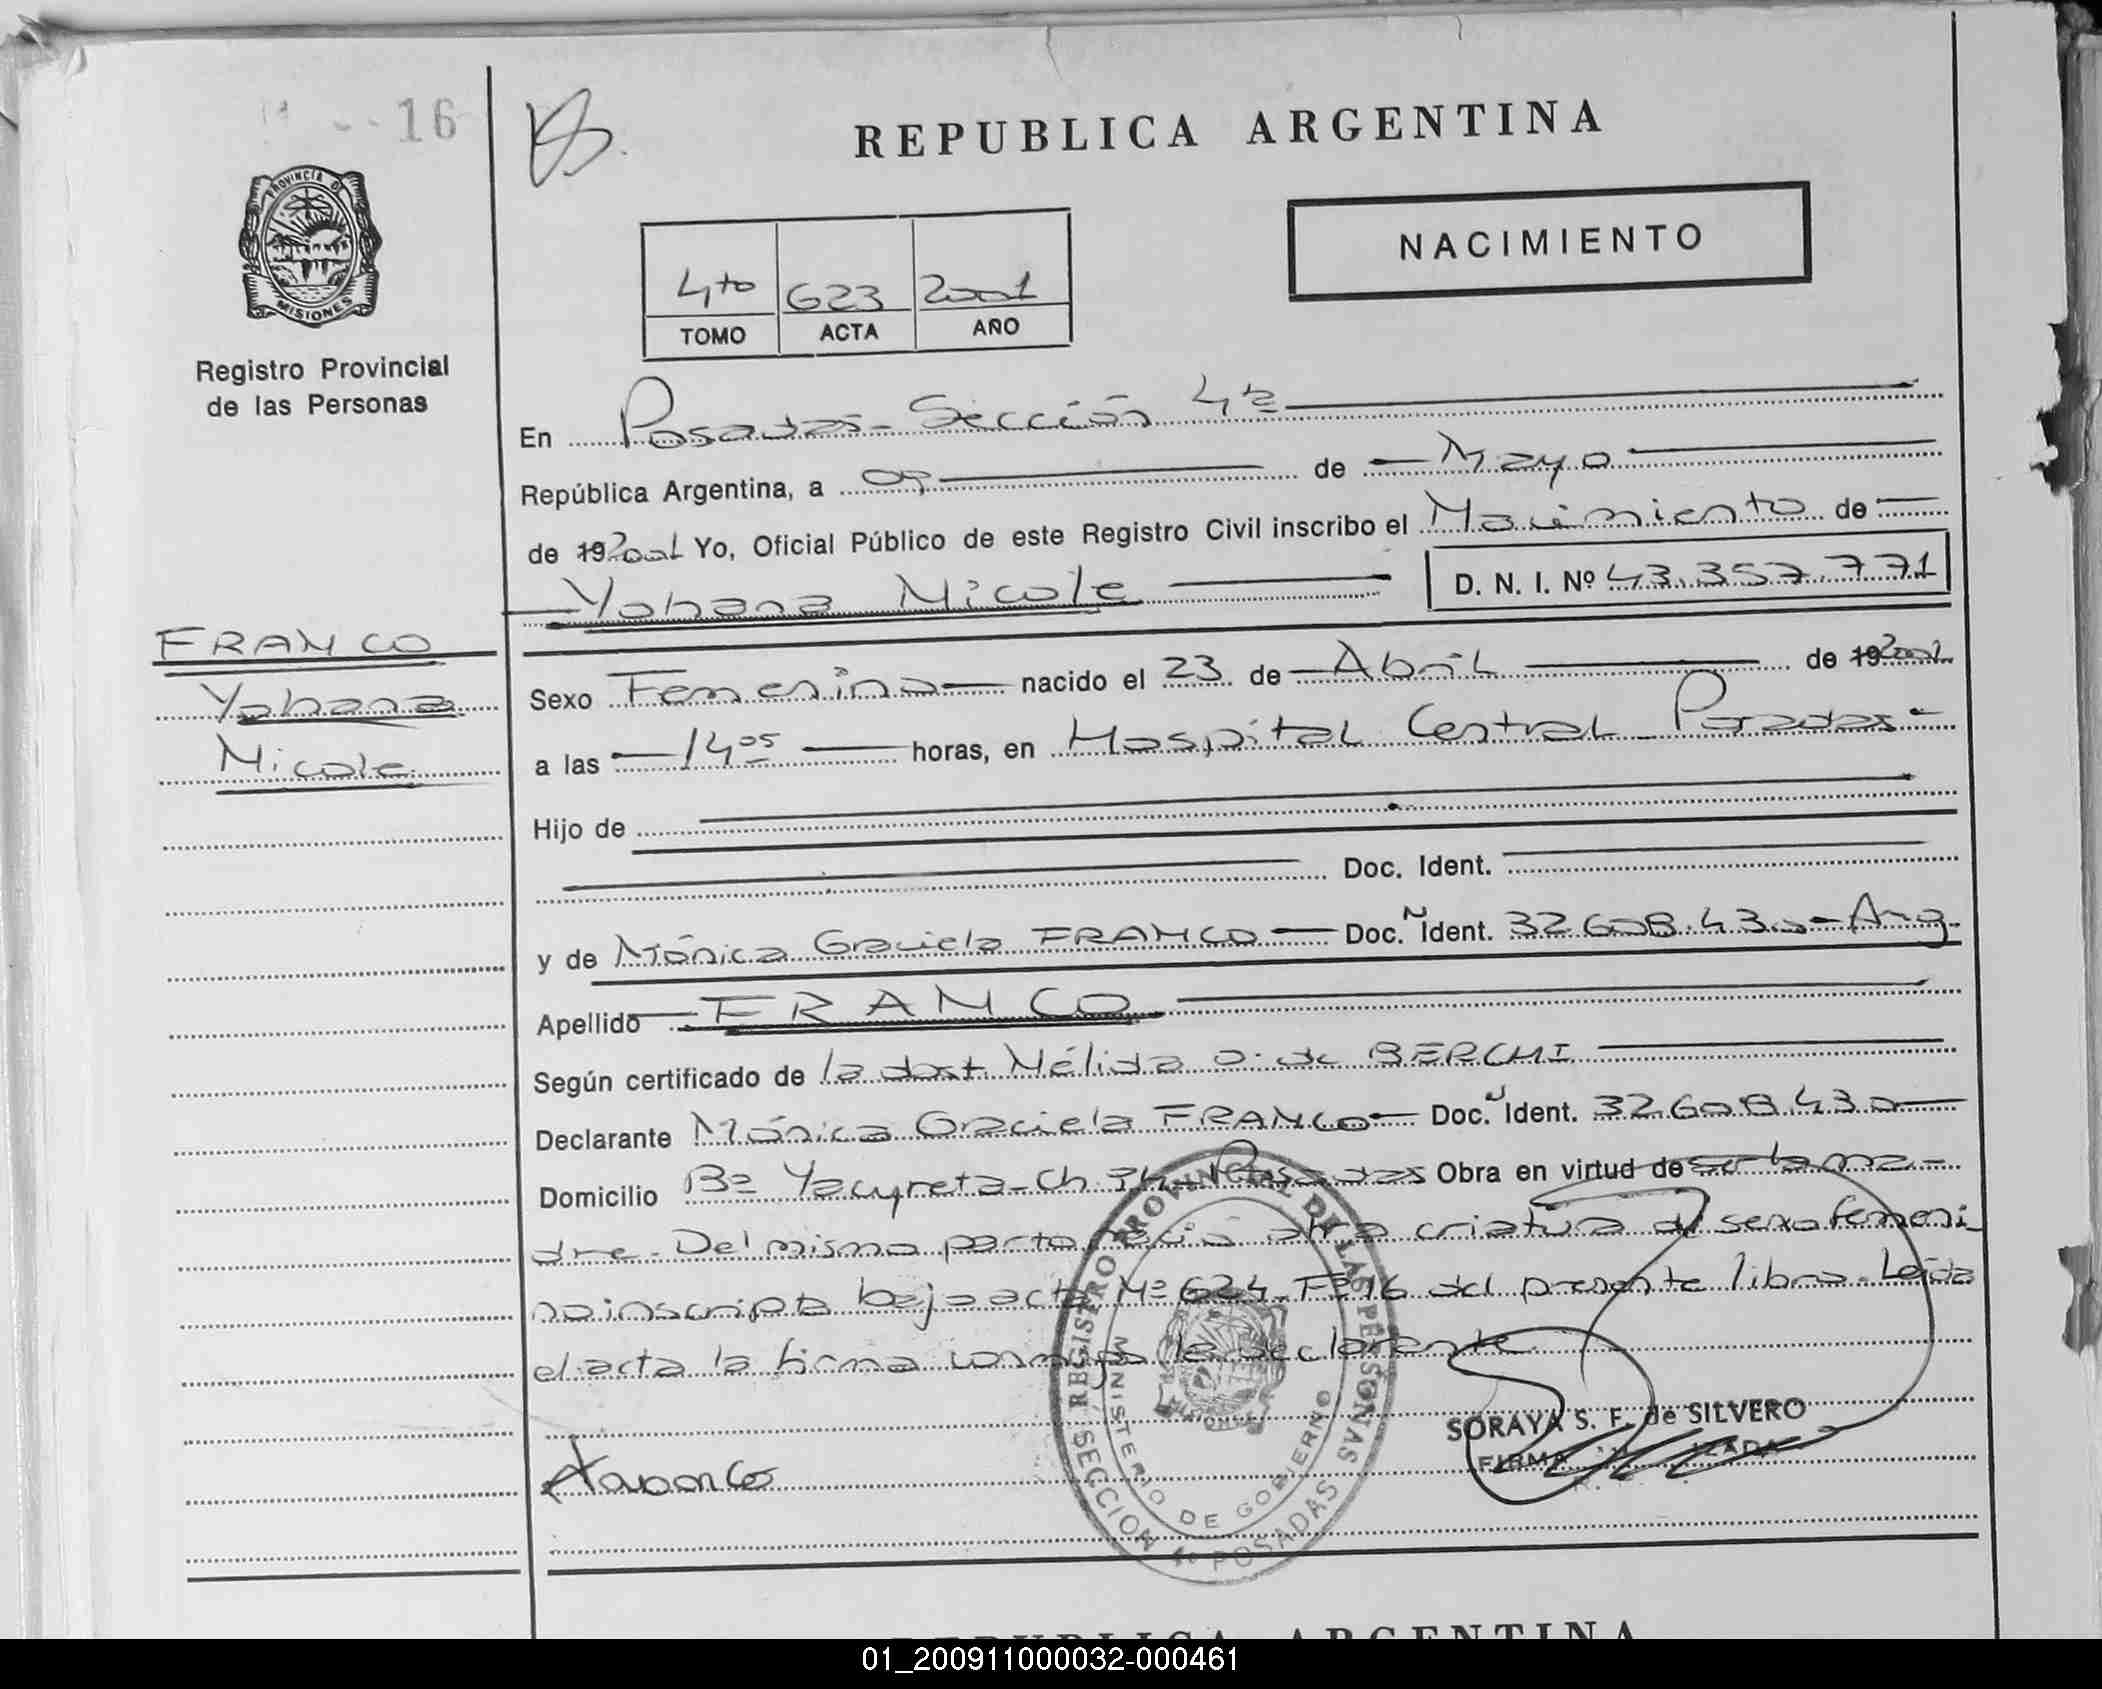 16
REPUBLICA ARGENTINA
NACIMIENTO
PROVINCIA DE
MISIONES
4to 623 2001
TOMO ACTA AÑO
Registro Provincial
de las Personas
En Posadas - Sección 4ta
República Argentina, a 09 de Mayo
de 192001 Yo, Oficial Público de este Registro Civil inscribo el Nacimiento de
Yohana Nicole D. N. I. Nº 43.357.771
FRANCO
Yohana
Nicole
Sexo Femenino nacido el 23 de Abril de 192001
a las 14 05 horas, en Hospital Central - Posadas -
Hijo de
Doc. Ident.
y de Mónica Graciela FRANCO Doc. N Ident. 32.608.430 - Arg.
Apellido FRANCO
Según certificado de la dost. Nélida O. de BERCHI
Declarante Mónica Graciela FRANCO Doc. N Ident. 32.608.430
Domicilio Bº Yacyreta - Ch. Posadas Obra en virtud de ser la ma-
dre - Del mismo parto nació otra criatura del sexo femeni
no inscripta bajo acta Nº 624 - Fº 16 del presente libro. Leída
el acta la firma conmigo la declarante
REGISTRO PROVINCIAL DE LAS PERSONAS
MINISTERIO DE GOBIERNO
SECCION 4a POSADAS
SORAYA S. F. de SILVERO
REPUBLICA ARGENTINA
01_200911000032-000461